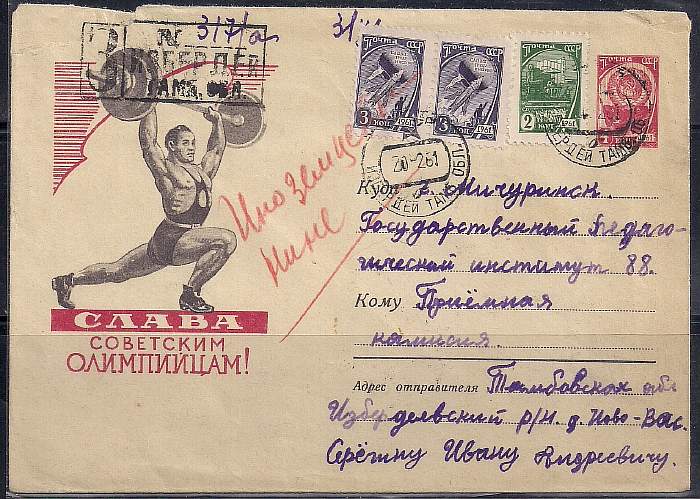 317/а
З
ИЗБЕРДЕЙ
ТАМБ. ОБЛ.
ПОЧТА СССР
3 КОП. 1961
ПОЧТА СССР
3 КОП. 1961
ПОЧТА СССР
2 КОП. 1961
20-2.61
ИЗБЕРДЕЙ ТАМБ. ОБЛ.
Иноземце
Нине
СЛАВА
СОВЕТСКИМ
ОЛИМПИЙЦАМ!
Куда г. Мичуринск.
Государственный Педаго-
гический институт 88.
Кому Приёмная
камисия
Адрес отправителя Тамбовская обл
Избердеевский р/н. д. Ново-Вас.
Серёгину Ивану Андреевичу.